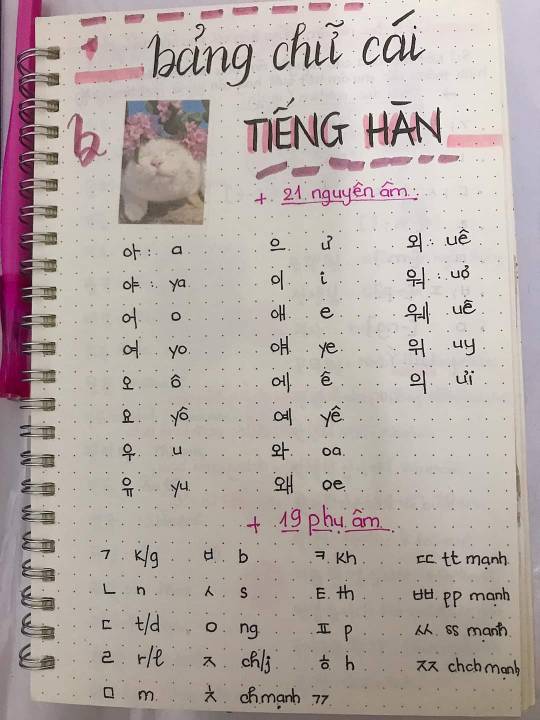 bảng chữ cái
TIẾNG HÀN
+ 21 nguyên âm:
아 : a 으 ư 외 : uê
야 : ya 이 i 워 : uơ
어 o 애 e 웨 uê
여 yo 얘 ye 위 uy
오 ô 에 ê 의 ưi
요 yô 예 yê
우 u 와 oa
유 yu 왜 oe
+ 19 phụ âm
ㄱ k/g ㅂ b ㅋ kh ㄸ tt mạnh
ㄴ n ㅅ s ㅌ th ㅃ pp mạnh
ㄷ t/d ㅇ ng ㅍ p ㅆ ss mạnh
ㄹ r/l ㅈ ch/j ㅎ h ㅉ chch mạnh
ㅁ m ㅊ ch mạnh ㄲ